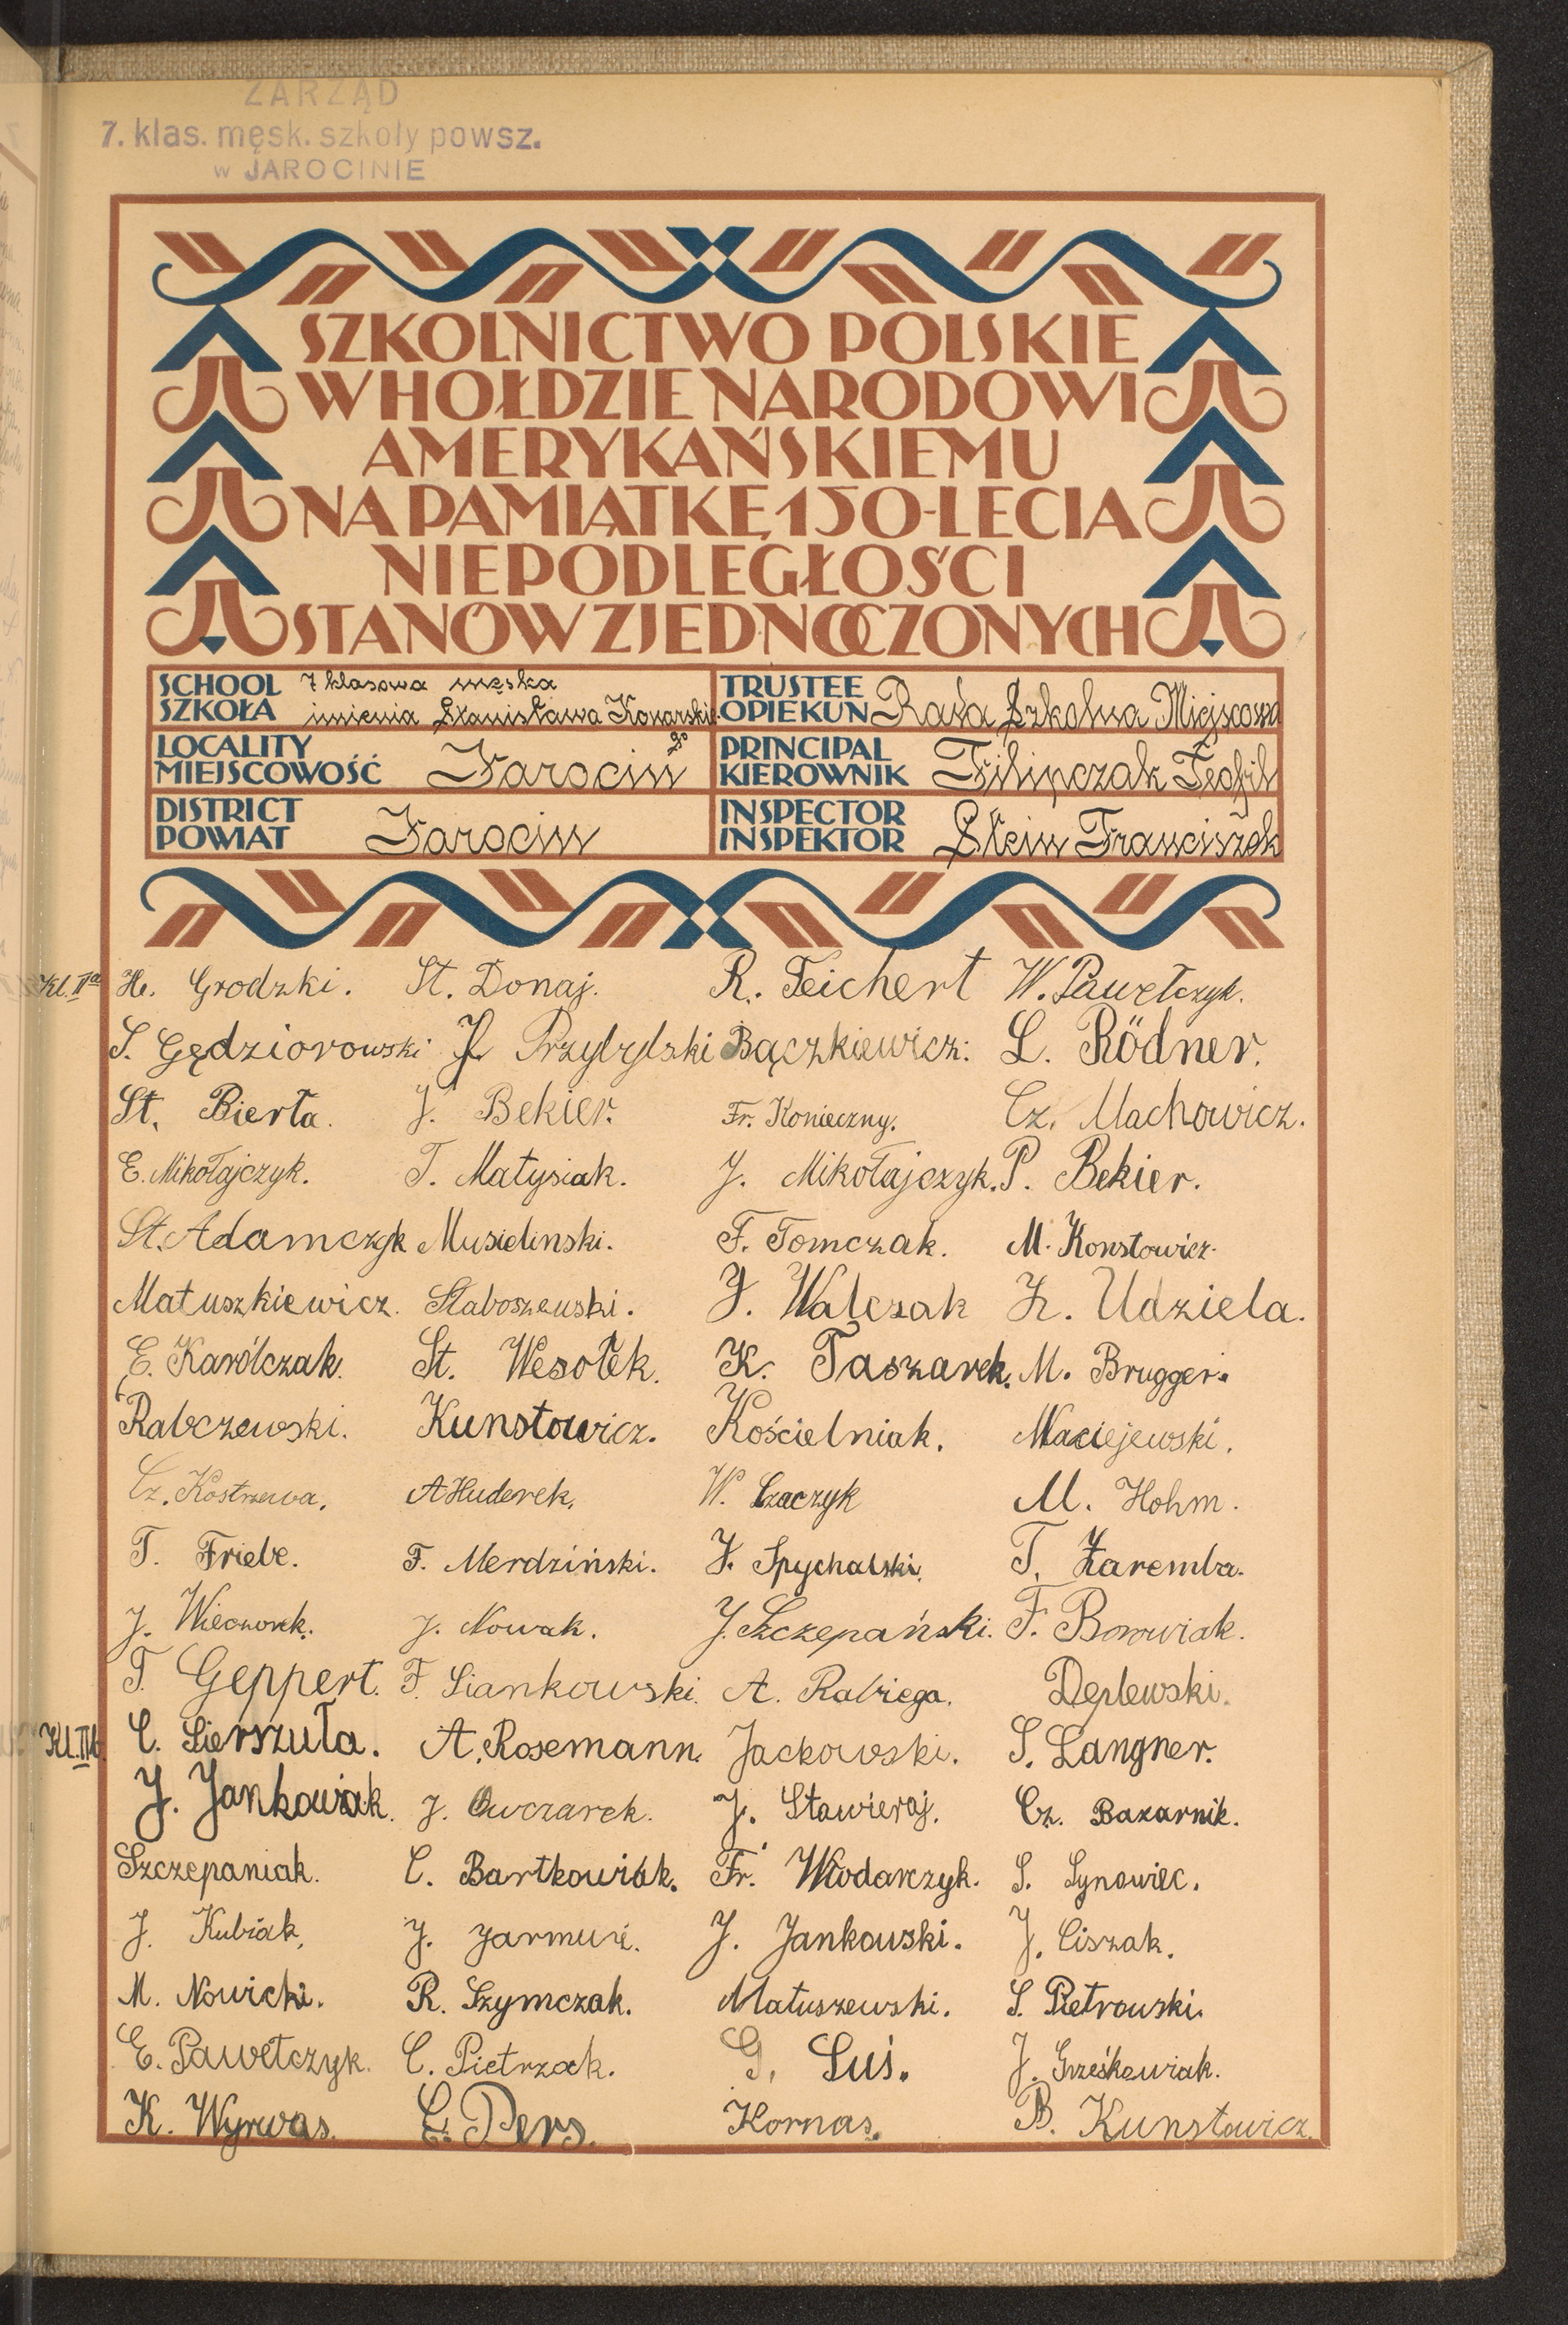 ZARZĄD
7. klas. męsk. szkoły powsz.
w JAROCINIE
SZKOLNICTWO POLSKIE
W HOŁDZIE NARODOWI
AMERYKAŃSKIEMU
NA PAMIĄTKĘ 150-LECIA
NIEPODLEGŁOŚCI
STANÓW ZJEDNOCZONYCH
SCHOOL 7 klasowa męska TRUSTEE
SZKOŁA imienia Stanisława Konarskiego OPIEKUN Rada Szkolna Miejscowa
LOCALITY PRINCIPAL
MIEJSCOWOŚĆ Jarocin KIEROWNIK Filipczak Teofil
DISTRICT INSPECTOR
POWIAT Jarocin INSPEKTOR Stein Franciszek
Kl. IIa He. Grodzki. St. Donaj. R. Teichert W. Pawełczyk.
S. Gędziorowski J. Przybylski Bączkiewicz. L. Rödner.
St. Bierła. J. Bekier. Fr. Konieczny. Cz. Machowicz.
E. Mikołajczyk. T. Matysiak. J. Mikołajczyk. P. Bekier.
St. Adamczyk Musielinski. F. Tomczak. M. Konstowicz.
Matuszkiewicz. Staboszewski. J. Walczak Z. Udziela.
E. Karólczak. St. Wesołek. K. Taszarek. M. Brugger.
Rabczewski. Kunstowicz. Kościelniak. Maciejewski.
Cz. Kostrzewa. A Huderek. W. Szaczyk M. Hohm.
T. Friebe. F. Merdziński. J. Spychalski. T. Zaremba.
J. Wieczorek. J. Nowak. J. Szczepański. F. Borowiak.
T. Geppert. F. Siankowski. A. Rabiega. Deplewski.
Kl. IIb. C. Sierszuła. A. Rosemann. Jackowski. S. Langner.
J. Jankowiak. J. Owczarek. J. Stawieraj. Cz. Bazarnik.
Szczepaniak. C. Bartkowiak. Fr. Włodarczyk. S. Synowiec.
J. Kubiak. J. Jarmuż. J. Jankowski. J. Ciszak.
M. Nowicki. R. Szymczak. Matuszewski. S. Pietrowski.
E. Pawełczyk. C. Pietrzak. G. Suś. J. Grześkowiak.
K. Wyrwas. E. Pers. Kornas. B. Kunstowicz.